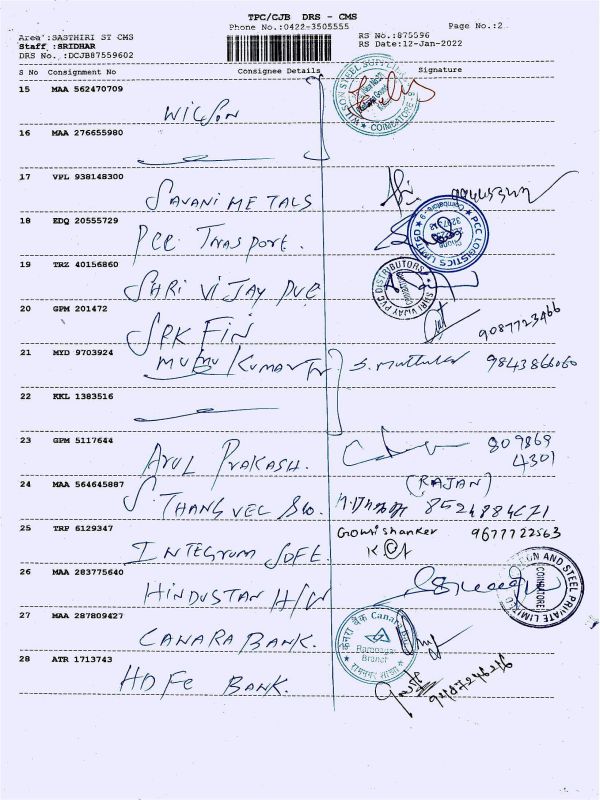 TPC/CJB DRS - CMS
Phone No.:0422-3505555
Page No.:2
Area :SASTHIRI ST CMS
Staff :SRIDHAR
DRS No. :DCJB87559602
RS No.:875596
RS Date:12-Jan-2022
S No Consignment No Consignee Details Signature
15 MAA 562470709
WILSON
COIMBATORE
16 MAA 276655980
17 VPL 938148300
SAVANI METALS
18 EDQ 20555729
PCC TRASPORT.
PCC LOGISTICS LIMITED
Coimbatore-9
19 TRZ 40156860
SHRI VIJAY PVC
SHRI VIJAY PVC DISTRIBUTORS
20 GPM 201472
SRK FIN
9087723466
21 MYD 9703924
MUTHU KUMAR
9843866060
22 KKL 1383516
23 GPM 5117644
ARUL PRAKASH.
809869
4301
24 MAA 564645887
(RAJAN)
S THANGVEL
25 TRP 6129347
Gowrishanker 9677722563
INTEGRUM SOFT
26 MAA 283775640
HINDUSTAN H/W
AND STEEL PRIVATE LIMITED
COIMBATORE
27 MAA 287809427
CANARA BANK.
केनरा बैंक Canara Bank
Ramnagar
Branch
रामनगर शाखा
28 ATR 1713743
HDFC BANK.